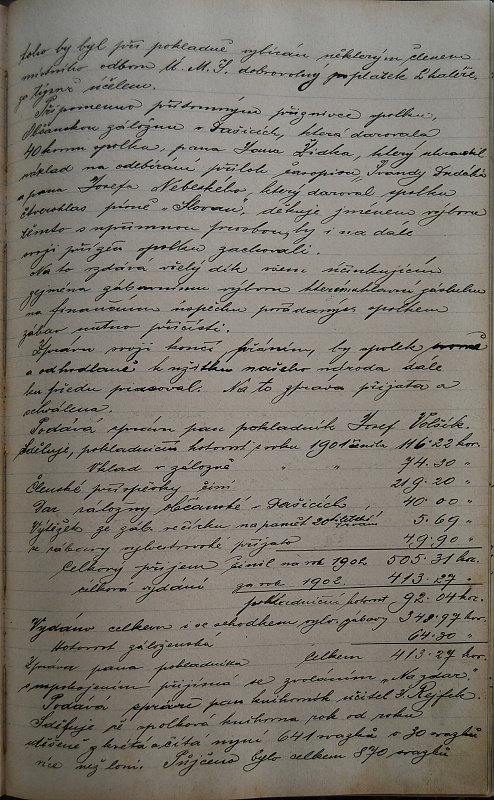 toho by byl při pokladně vybírán některým členem
místního odboru Ú. M. Š. dobrovolný poplatek 2 haléře,
za týmž účelem.
Připomenuv přítomným příznivce spolku,
Občanskou záložnu v Dašicích, která darovala
40 korun spolku, pana Jana Židka, který uhradil
náklad na odebírání příloh časopisu,
a pana Josefa Nebeského, který daroval spolku
čtverohlas písně „Slovan", děkuje jménem výboru
těmto s upřímnou prosbou, by i na dále
svoji přízeň spolku zachovali.
Na to vzdává vřelý dík všem účinkujícím
zejména zábavnímu výboru kterému hlavní zásluhu
na finančním úspěchu pořádaných spolkem
zábav nutno přičísti.
Zprávu svoji končí přáním, by spolek
a odhodlaně k užitku našeho národa dále
ku předu pracoval. Na to zpráva přijata a
schválena.
Podává zprávu pan pokladník Josef Volšík.
Sděluje, pokladniční hotovost z roku 1901 činila 116·22 kor.
Vklad v záložně " " 74·30 "
Členské příspěvky činí 219·20 "
Dar záložny občanské - Dašicích 40·00 "
Výtěžek ze záb. večírku na paměť 20tiletého trvání 5·69 "
z zábavy sylvestrovské přijato 49·90 "
Celkový příjem činil na rok 1902 505·31 kor.
celková vydání za rok 1902 413·27 "
pokladniční hotovost 92·04 kor.
Vydáno celkem i se schodkem sylv. zábavy 348·97 kor.
Hotovost záloženská 64·30 "
Celkem 413·27 kor.
Zpráva pana pokladníka
s uspokojením přijímá se zvoláním „Na zdar."
Podává zprávu pan knihovník učitel J. Rejfek.
Sděluje že spolková knihovna rok od roku
utěšeně zkvétá a čítá nyní 641 svazků o 30 svazků
více než loni. Půjčeno bylo celkem 870 svazků